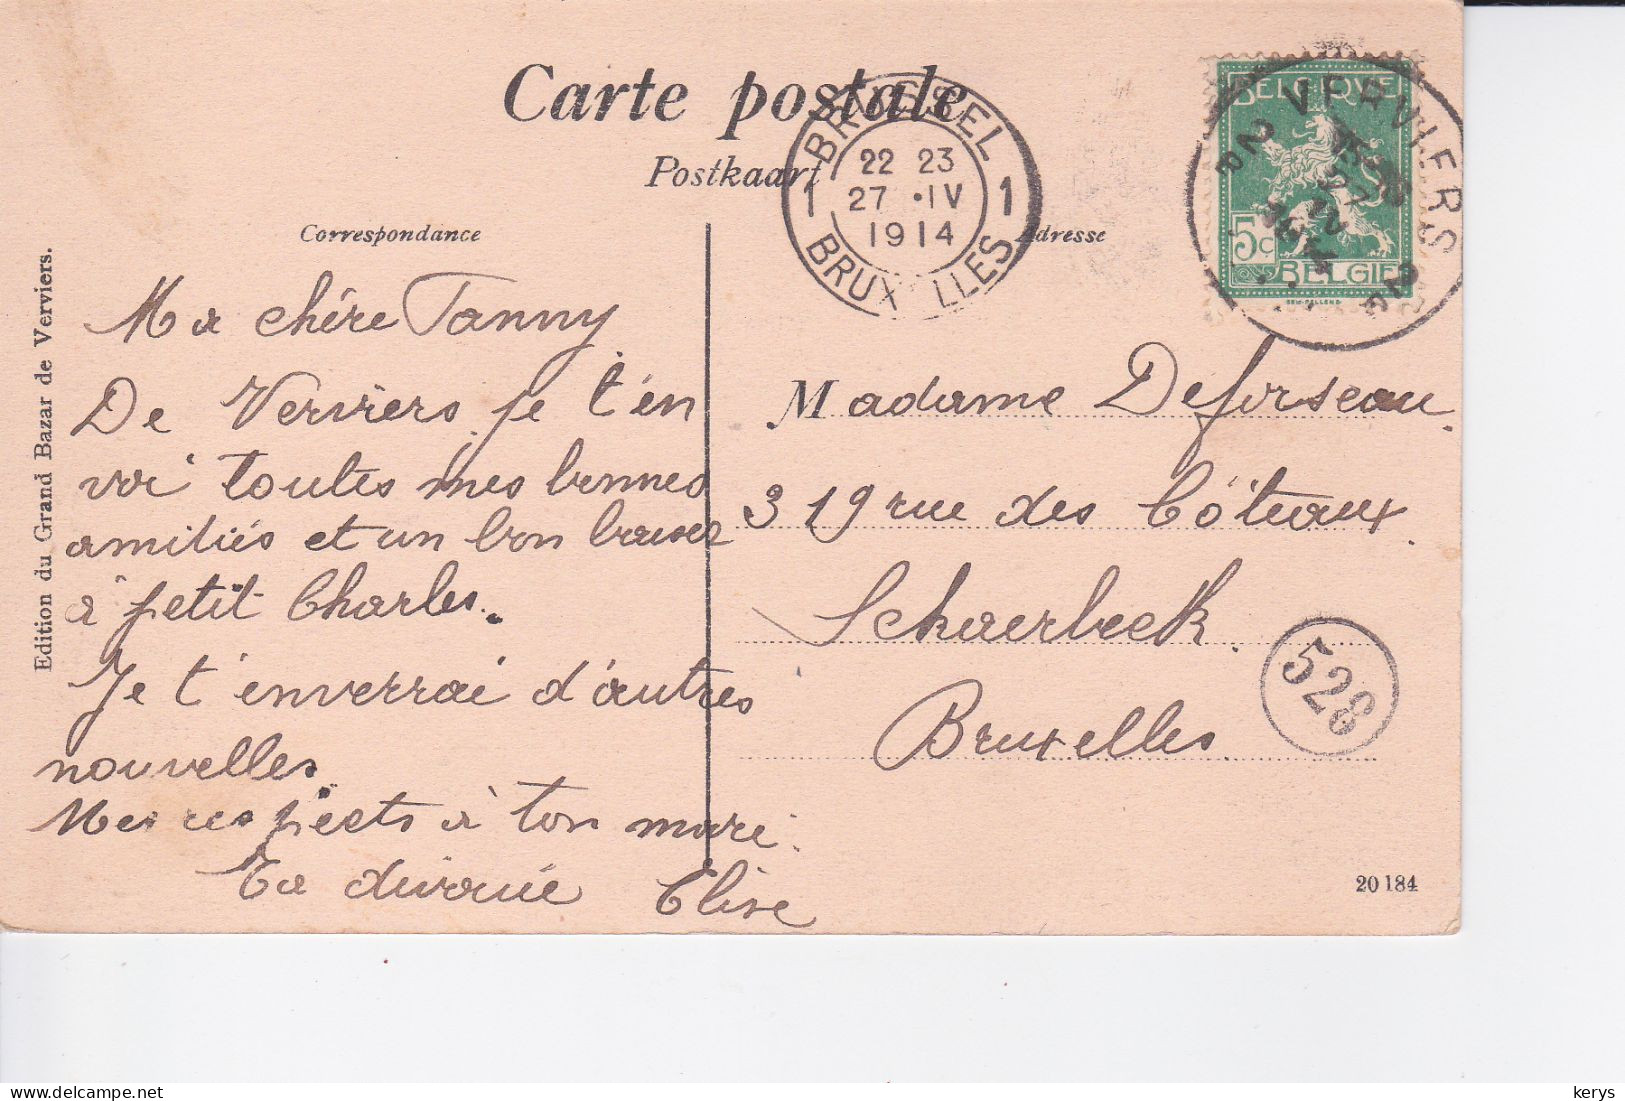 Carte postale
Postkaart
Correspondance
Adresse
Edition du Grand Bazar de Verviers.
BRUSSEL
22 23
27 •IV
1914
1 1
BRUX LLES
BELGIQUE
5c
BELGIE
VERVIERS
Ma chère Fanny
De Verviers je t'en
voi toutes mes bonnes
amitiés et un bon baiser
à petit Charles.
Je t'enverrai d'autres
nouvelles
Mes respects à ton mari.
Ta dévouée Elise
Madame Deforseau.
319 rue des Côteaux.
Schaerbeek.
Bruxelles.
528
20 184
kerys